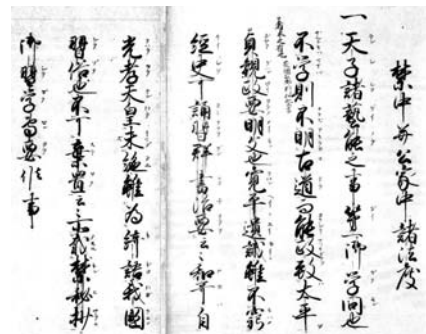 禁中并公家中諸法度
一天子諸藝能之事第一御学问也
不学則不明古道而能政致太平
貞観政要明文也寛平遺誡雖不窮
經史可誦習群書治要云々和可自
光孝天皇未絶雖為綺語我國
習俗也不可棄置云々所載禁秘抄
御習学専要候事